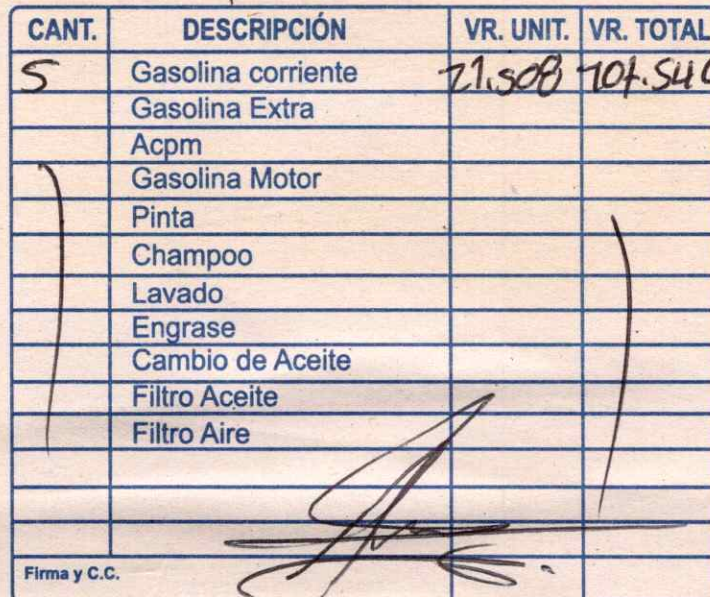 CANT. DESCRIPCIÓN VR. UNIT. VR. TOTAL
5 Gasolina corriente 21.508 107.540
Gasolina Extra
Acpm
Gasolina Motor
Pinta
Champoo
Lavado
Engrase
Cambio de Aceite
Filtro Aceite
Filtro Aire
Firma y C.C.